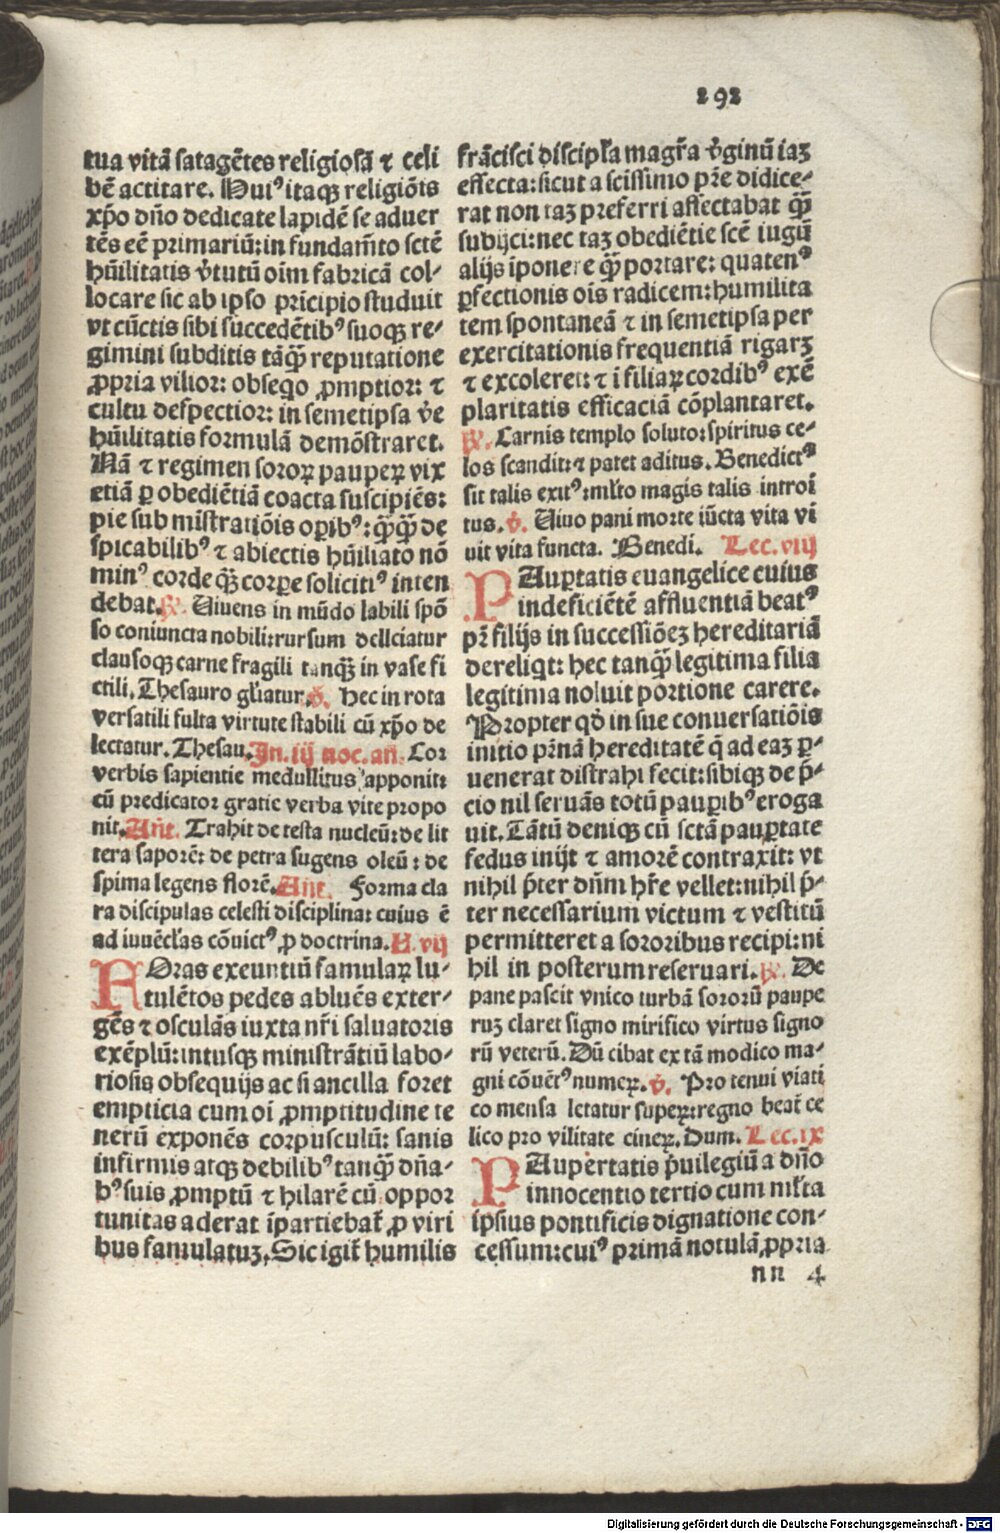 292
tua vitã satagẽtes religiosã ⁊ celi
bẽ actitare. Huiꝰ itaqꝫ religiõis
xp̃o dño dedicate lapidẽ se aduer
tẽs eẽ primariũ: in fundam̃to sctẽ
hũilitatis v̾tutũ oĩm fabricã col⸗
locare sic ab ipso prĩcipio studuit
vt cũctis sibi succedẽtibꝰ suoqꝫ re⸗
gimini subditis tãq̃ȝ reputatione
ꝓpria vilior: obseqo ꝓmptior: ⁊
cultu despectior: in semetipsa v̾e
hũilitatis formulã demõstraret.
Nã ⁊ regimen soroꝝ pauperꝝ vix
etiã ꝑ obediẽtiã coacta suscipiẽs:
pie sub mĩstratiõis opibꝰ: q̃ȝq̃ȝ de
spicabilibꝰ ⁊ abiectis hũiliato nõ
minꝰ corde q̃ȝ corpe solicitiꝰ inten
debat. ℟. Uiuens in mũdo labili spõ
so coniuncta nobili: rursum deliciatur
clausoqꝫ carne fragili tanq̃ȝ in vase fi
ctili. Thesauro gl̃iatur. ℣. Hec in rota
versatili fulta virtute stabili cũ xp̃o de
lectatur. Thesau. In. iij noc. añ. Cor
verbis sapientie medullitus apponit:
cũ predicator gratie verba vite propo
nit. Añt. Trahit de testa nucleũ: de lit
tera saporẽ: de petra sugens oleũ: de
spina legens florẽ. Añt. Forma cla
ra discipulas celesti disciplina: cuius ẽ
ad iuuẽcl̃as cõuictꝰ ꝓ doctrina. L. vij
FOras exeuntiũ famulaꝝ lu⸗
tulẽtos pedes abluẽs exter⸗
gẽs ⁊ osculãs iuxta nr̃i saluatoris
exẽplũ: intusqꝫ ministrãtiũ labo⸗
riosis obsequijs ac si ancilla foret
empticia cum oĩ ꝓmptitudine te
nerũ exponẽs corpusculũ: sanis
infirmis atqꝫ debilibꝰ tanq̃ȝ dña⸗
bꝰ suis ꝓmptũ ⁊ hilarẽ cũ oppor
tunitas aderat ĩpartiebat̃ ꝓ viri
bus famulatuȝ. Sic igit̃ humilis
frãcisci discipl̃a magr̃a v̾ginũ iaȝ
effecta: sicut a sc̃issimo pr̃e didice⸗
rat non taȝ preferri affectabat q̃ȝ
subijci: nec taȝ obediẽtie scẽ iugũ
alijs ĩponere q̃ȝ portare: quatenꝰ
ꝑfectionis oĩs radicem: humilita
tem spontaneã ⁊ in semetipsa per
exercitationis frequentiã rigarȝ
⁊ excoleret: ⁊ i filiaꝝ cordibꝰ exẽ
plaritatis efficaciã cõplantaret.
℟. Carnis templo soluto: spiritus ce⸗
los scandit: ⁊ patet aditus. Benedictꝰ
sit talis exitꝰ: ml̃to magis talis introi
tus. ℣. Uiuo pani morte iũcta vita vi
uit vita functa. Benedi. Lec. viij
PAuꝑtatis euangelice cuius
indeficiẽtẽ affluentiã beatꝰ
pr̃ filijs in successiõeȝ hereditariã
dereliqt: hec tanq̃ȝ legitima filia
legitima noluit portione carere.
Propter qd̾ in sue conuersatiõis
initio pr̃nã hereditatẽ q̃ ad eaȝ ꝑ⸗
uenerat distrahi fecit: sibiqꝫ de p̃⸗
cio nil seruãs totũ pauꝑibꝰ eroga
uit. Tãtũ deniqꝫ cũ sctã pauꝑtate
fedus inijt ⁊ amorẽ contraxit: vt
nihil p̃ter dñm hr̃e vellet: nihil p̃⸗
ter necessarium victum ⁊ vestitũ
permitteret a sororibus recipi: ni
hil in posterum reseruari. ℟. De
pane pascit vnico turbã sororũ paupe
ruȝ claret signo mirifico virtus signo
rũ veterũ. Dũ cibat ex tã modico ma⸗
gni cõuẽtꝰ numeꝝ. ℣. Pro tenui viati
co mensa letatur supeꝝ: regno beat̃ ce
lico pro vilitate cineꝝ. Dum. Lec. ix
PAupertatis p̃uilegiũ a dño
innocentio tertio cum ml̃ta
ipsius pontificis dignatione con⸗
cessum: cuiꝰ primã notulã ꝓpria
nn 4
Digitalisierung gefördert durch die Deutsche Forschungsgemeinschaft - DFG